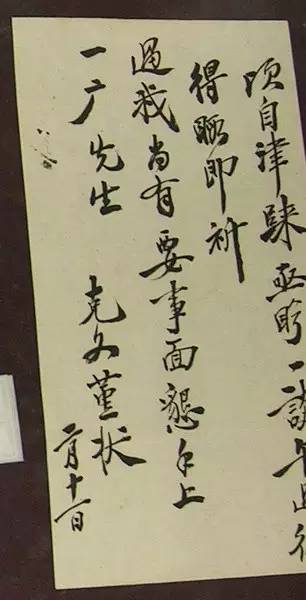 頃自津亟盼一談
得暇即祈
過我尚有要事面懇手上
一广先生 克文堇狀
二月十一日